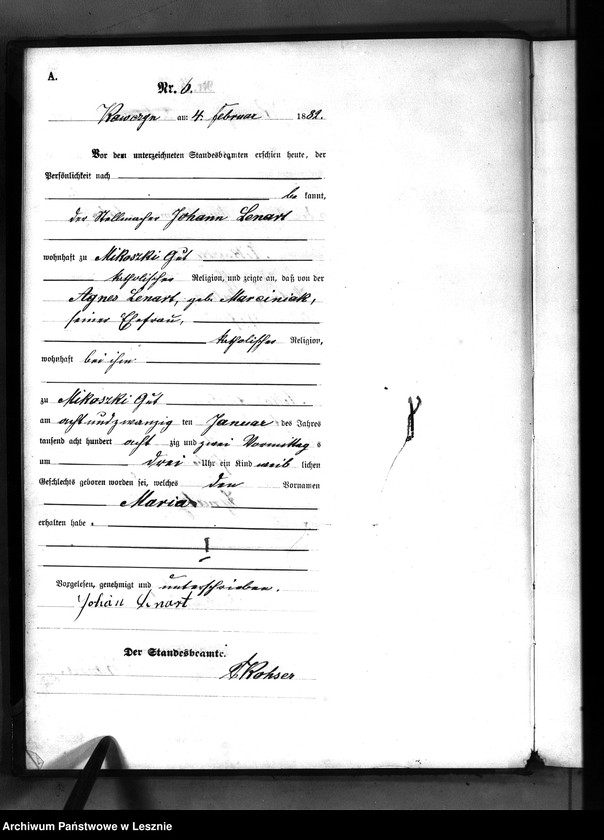 A.
Nr. 6.
Kawczyn am 4. Februar 1882.
Vor dem unterzeichneten Standesbeamten erschien heute, der
Persönlichkeit nach
be kannt,
der Stellmacher Johann Lenart
wohnhaft zu Mikoszki Gut
katholischer Religion, und zeigte an, daß von der
Agnes Lenart, geb. Marciniak,
seiner Ehefrau,
katholischer Religion,
wohnhaft bei ihm
zu Mikoszki Gut
am acht und zwanzig ten Januar des Jahres
tausend acht hundert acht zig und zwei Vormittag s
um drei Uhr ein Kind weib lichen
Geschlechts geboren worden sei, welches den Vornamen
Maria
erhalten habe.
Vorgelesen, genehmigt und unterschrieben.
Johan Lenart
Der Standesbeamte.
Archiwum Państwowe w Lesznie